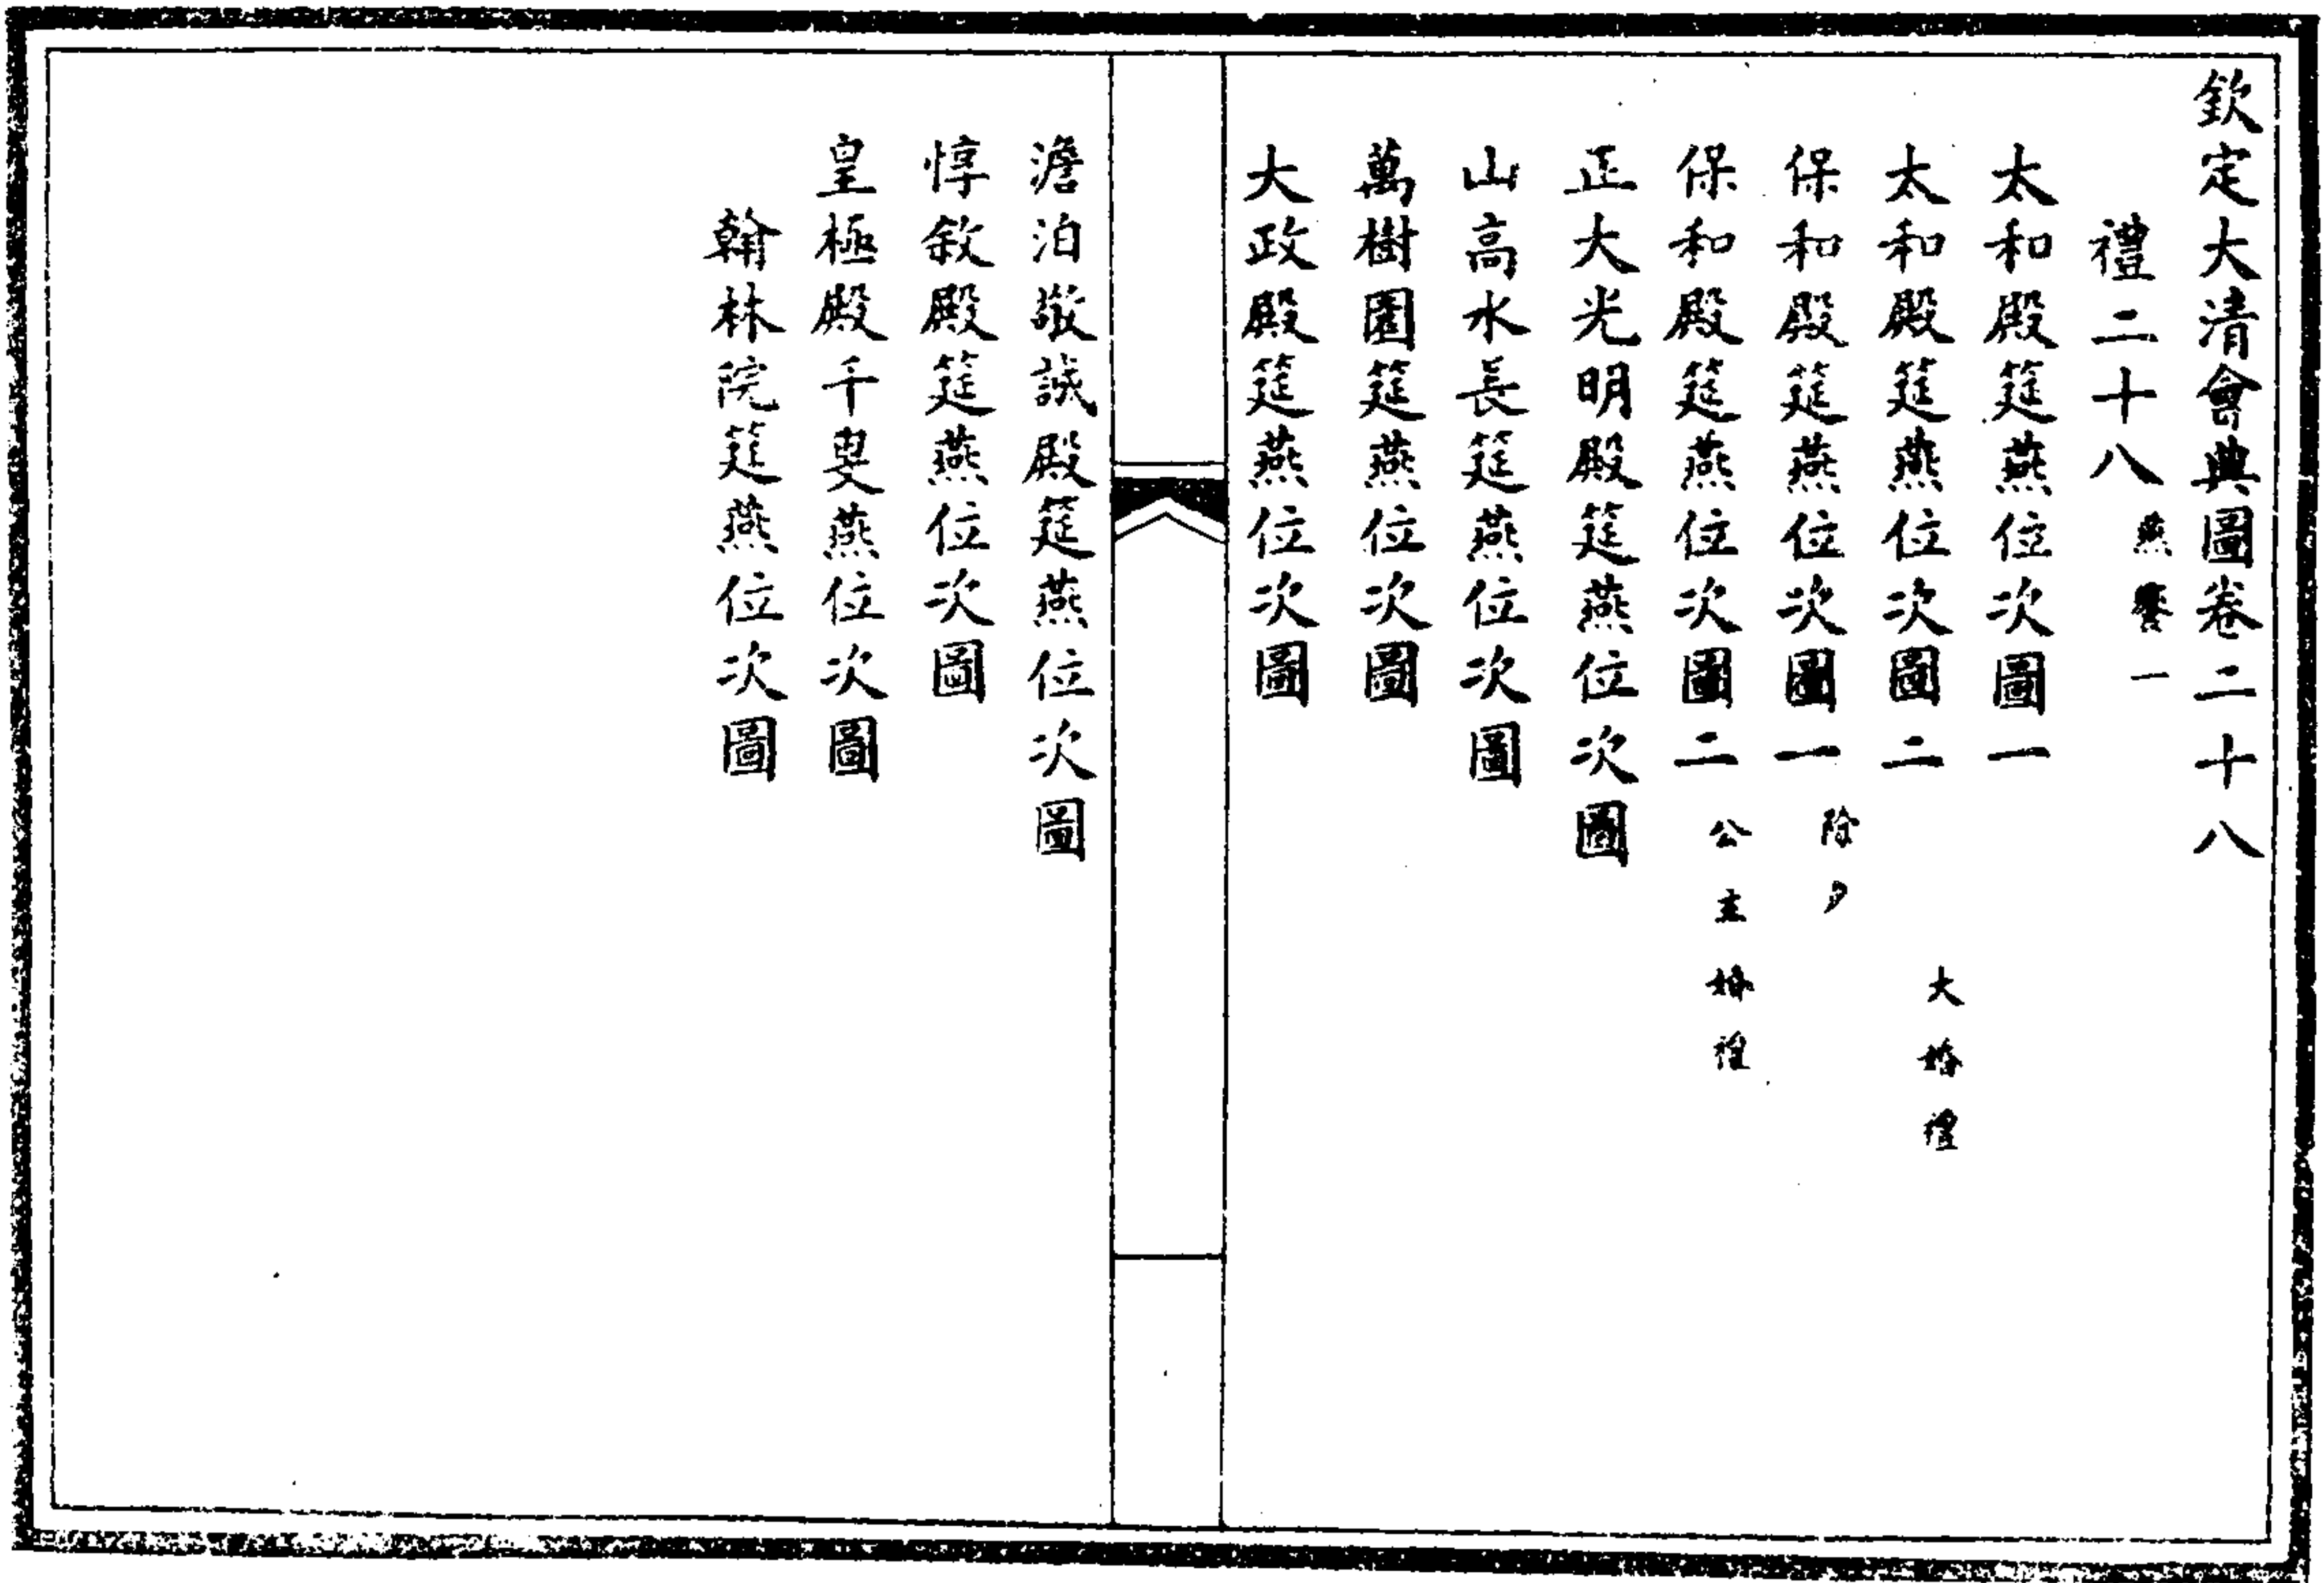 欽定大清會典圖卷二十八
禮二十八 燕饗一
太和殿筵燕位次圖一
太和殿筵燕位次圖二 大婚禮
保和殿筵燕位次圖一 除夕
保和殿筵燕位次圖二 公主婚禮
正大光明殿筵燕位次圖
山高水長筵燕位次圖
萬樹園筵燕位次圖
大政殿筵燕位次圖
澹泊敬誠殿筵燕位次圖
惇敘殿筵燕位次圖
皇極殿千叟燕位次圖
翰林院筵燕位次圖